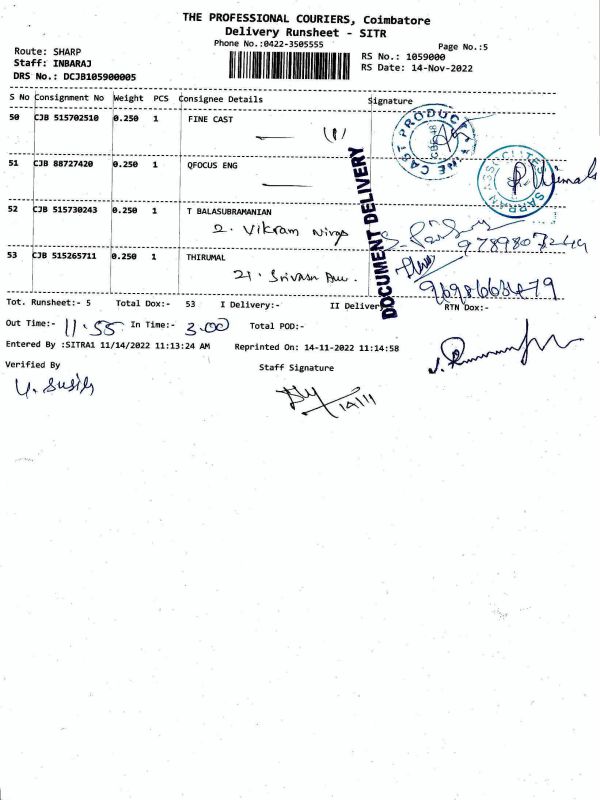 THE PROFESSIONAL COURIERS, Coimbatore
Delivery Runsheet - SITR
Phone No.:0422-3505555
Page No.:5
Route: SHARP
RS No.: 1059000
Staff: INBARAJ
RS Date: 14-Nov-2022
DRS No.: DCJB105900005
S No Consignment No Weight PCS Consignee Details Signature
50 CJB 515702510 0.250 1 FINE CAST
51 CJB 88727420 0.250 1 QFOCUS ENG
52 CJB 515730243 0.250 1 T BALASUBRAMANIAN
2. Vikram
9789807249
53 CJB 515265711 0.250 1 THIRUMAL
DOCUMENT DELIVERY
Tot. Runsheet:- 5 Total Dox:- 53 I Delivery:- II Delivery RTN Dox:-
Out Time:- 11.55 In Time:- 3.00 Total POD:-
Entered By :SITRA1 11/14/2022 11:13:24 AM Reprinted On: 14-11-2022 11:14:58
Verified By Staff Signature
14/11